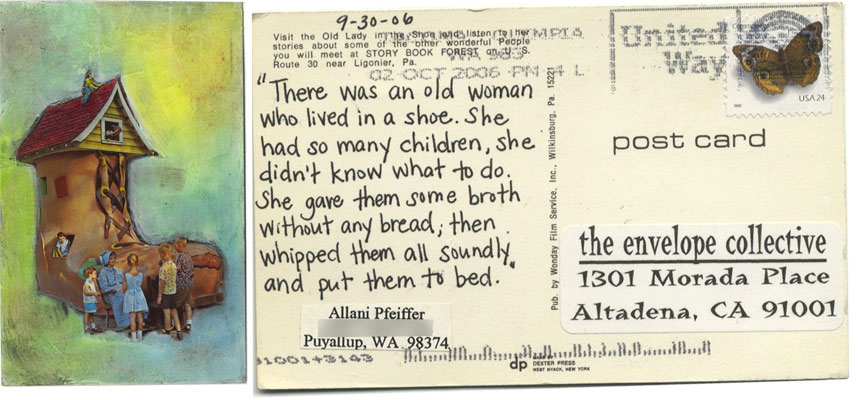 9-30-06
Visit the Old Lady in the Shoe and listen to her
stories about some of the other wonderful People
you will meet at STORY BOOK FOREST on U. S.
Route 30 near Ligonier, Pa.
WA 983
02 OCT 2006 PM 4 L
United
Way
USA 24
"There was an old woman
who lived in a shoe. She
had so many children, she
didn't know what to do.
She gave them some broth
without any bread; then
whipped them all soundly
and put them to bed."
Pub. by Wonday Film Service, Inc., Wilkinsburg, Pa. 15221
post card
the envelope collective
1301 Morada Place
Altadena, CA 91001
Allani Pfeiffer
Puyallup, WA 98374
dp
DEXTER PRESS
WEST NYACK, NEW YORK